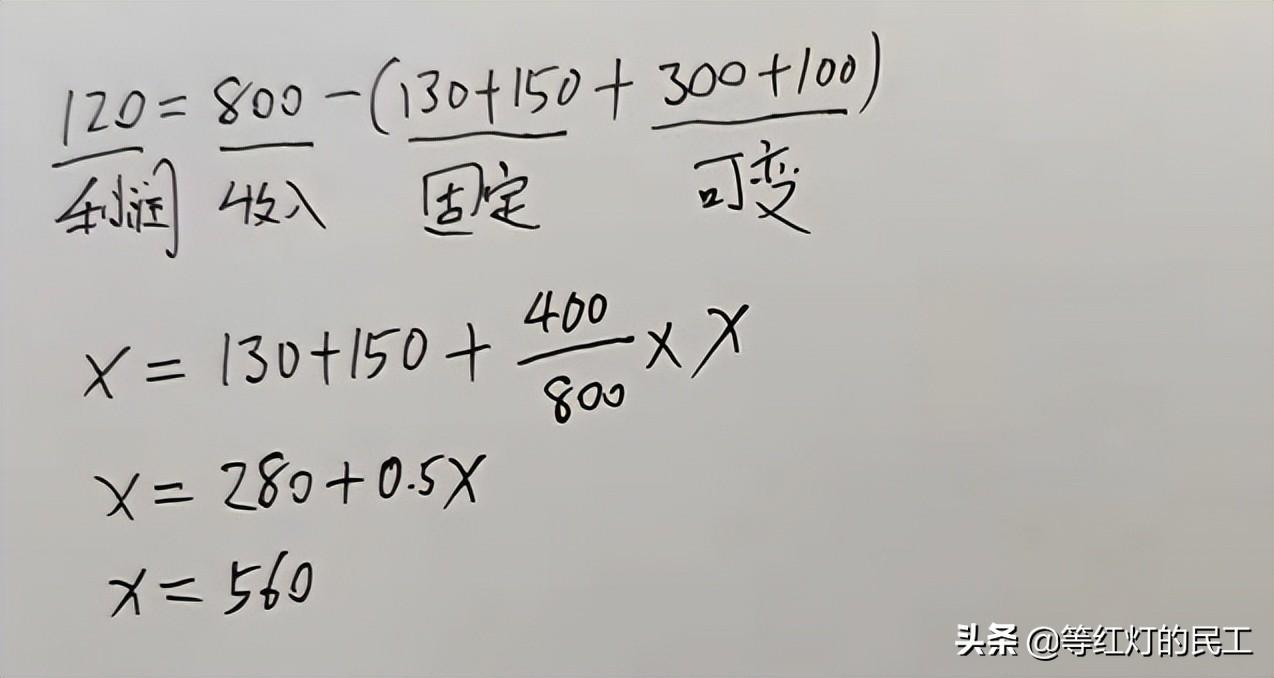 120=800-(130+150+300+100)
利润 收入 固定 可变
X=130+150+400/800×X
X=280+0.5X
X=560
头条 @等红灯的民工